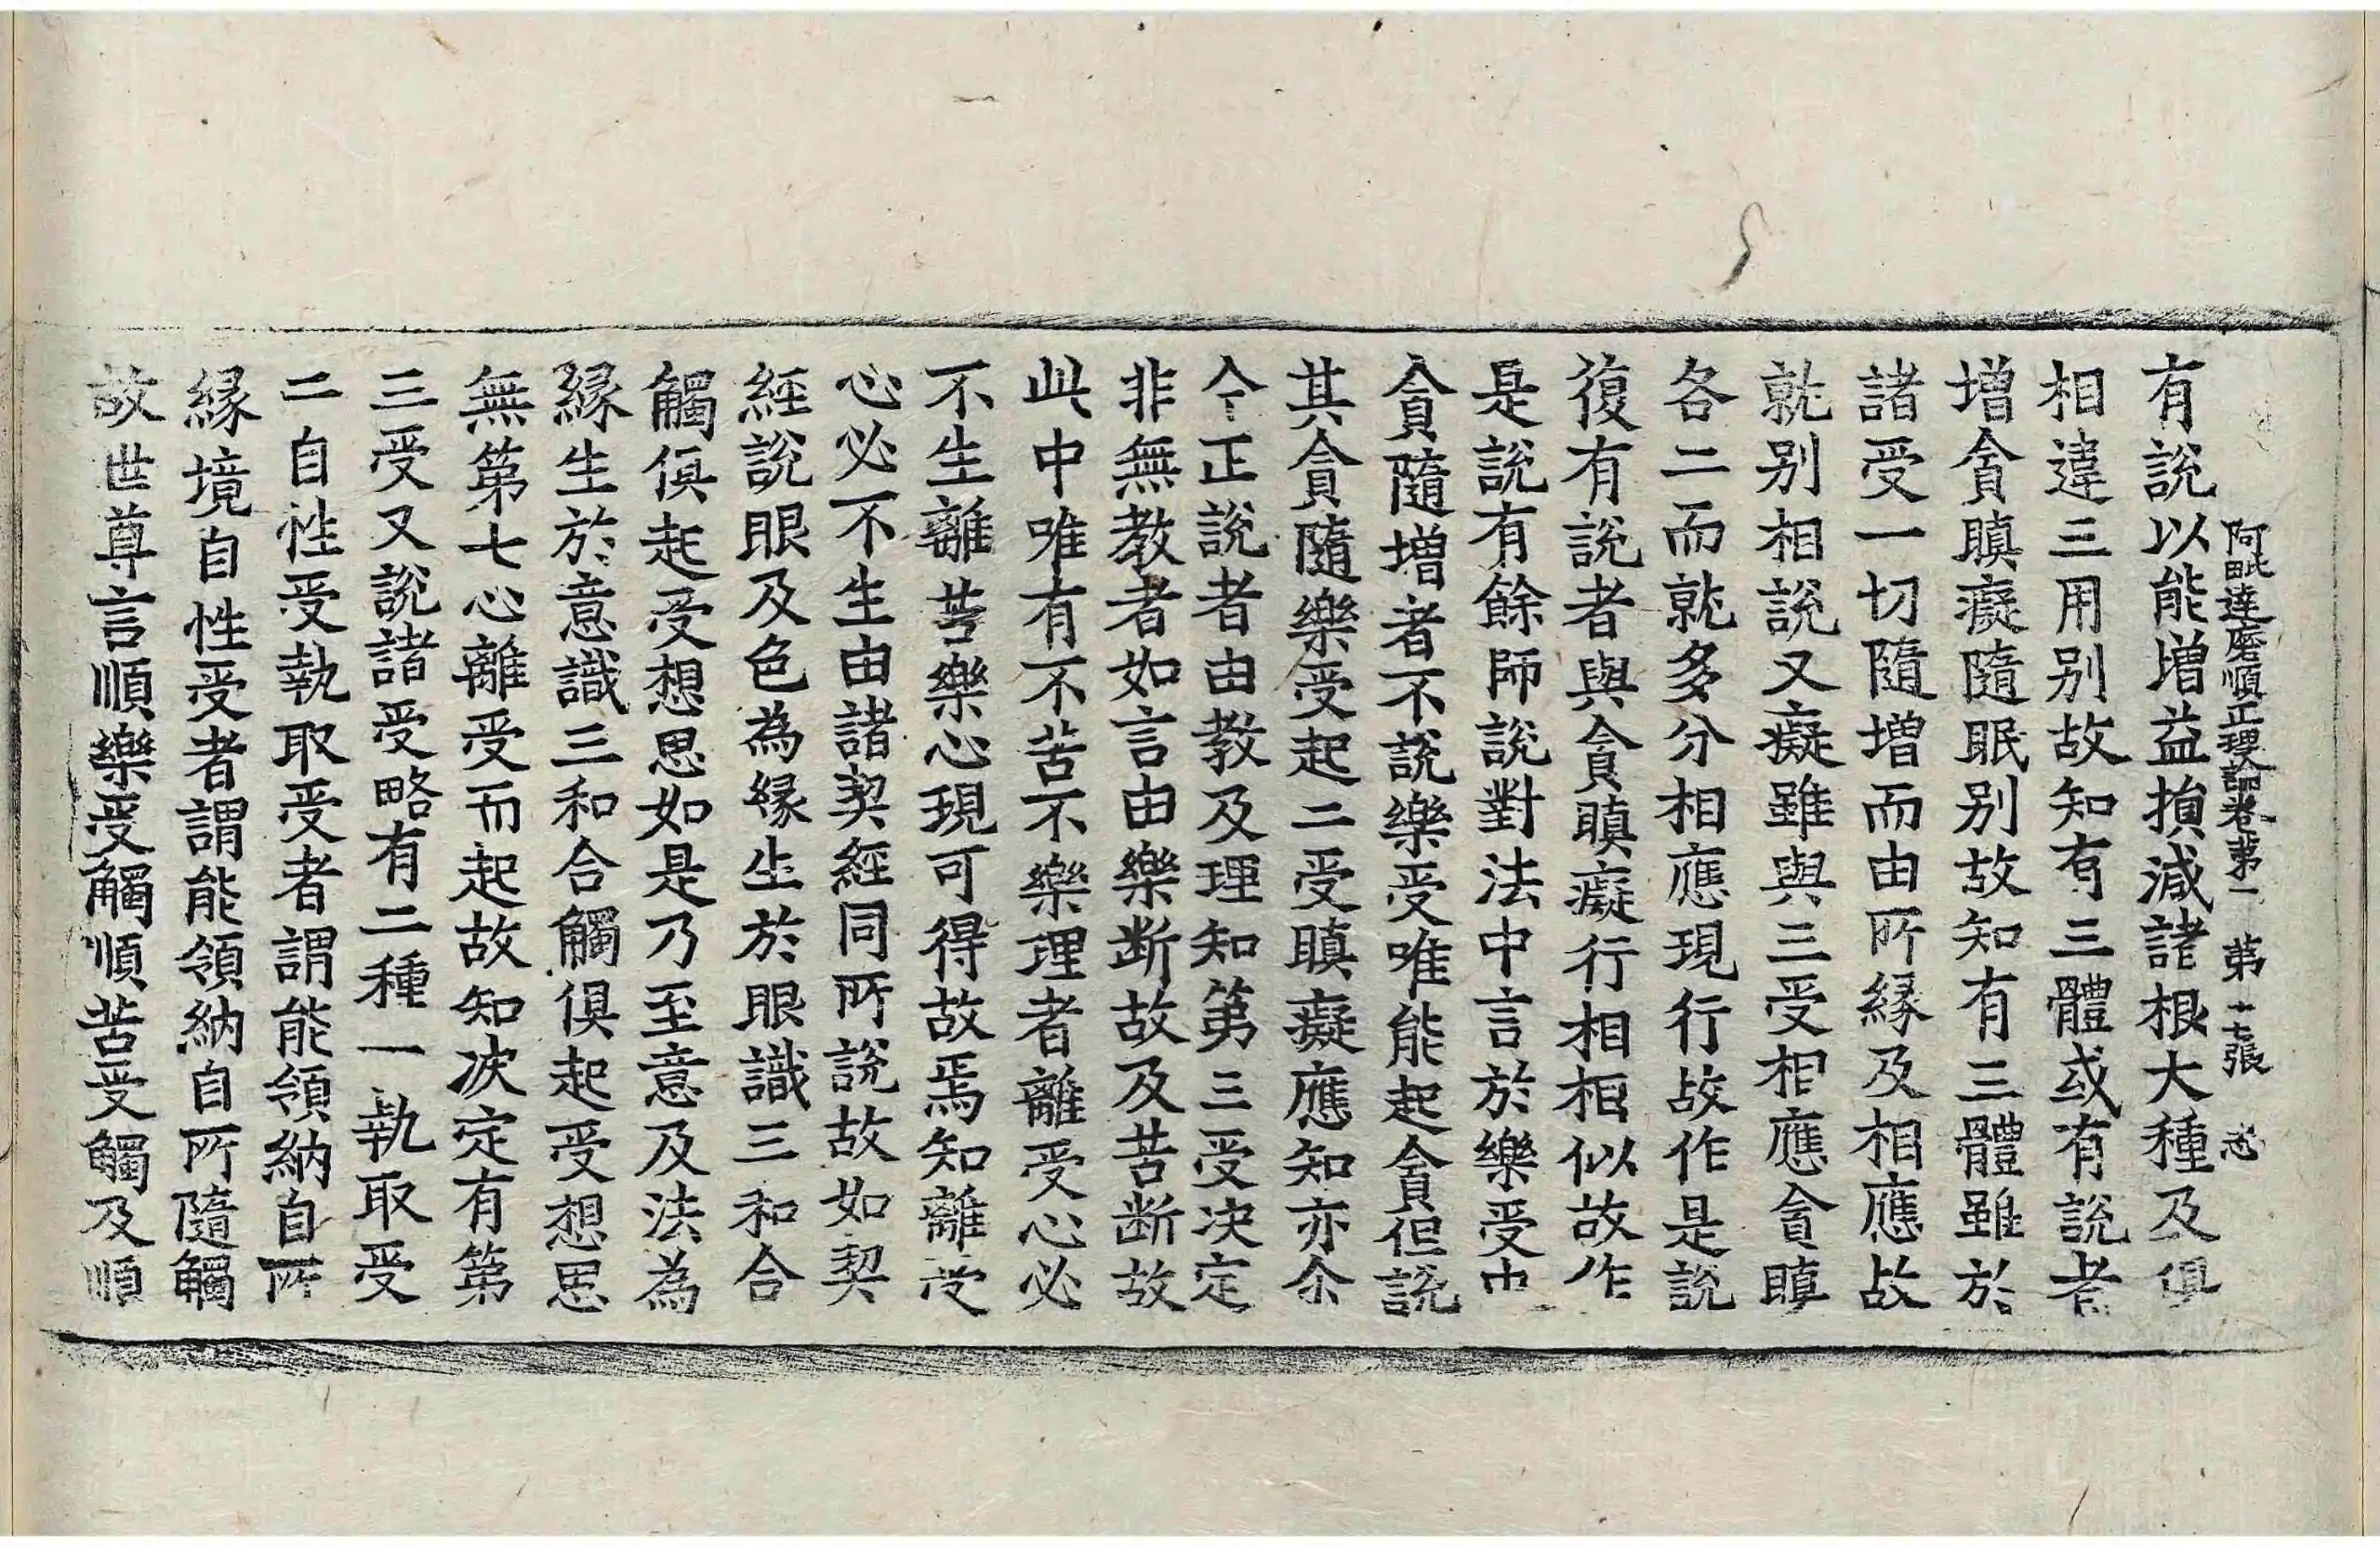 阿毗達磨順正理論卷第二 第十七張 志
有說以能增益損減諸根大種及俱
相違三用别故知有三體或有說者
增貪瞋癡隨眠别故知有三體雖於
諸受一切隨增而由所緣及相應故
就别相說又癡雖與三受相應貪瞋
各二而就多分相應現行故作是說
復有說者與貪瞋癡行相相似故作
是說有餘師說對法中言於樂受中
貪隨增者不說樂受唯能起貪但說
其貪隨樂受起二受瞋癡應知亦尒
今正說者由教及理知第三受決定
非無教者如言由樂斷故及苦斷故
此中唯有不苦不樂理者離受心必
不生離苦樂心現可得故焉知離受
心必不生由諸契經同所說故如契
經說眼及色為緣生於眼識三和合
觸俱起受想思如是乃至意及法為
緣生於意識三和合觸俱起受想思
無第七心離受而起故知決定有第
三受又說諸受略有二種一執取受
二自性受執取受者謂能領納自所
緣境自性受者謂能領納自所隨觸
故世尊言順樂受觸順苦受觸及順